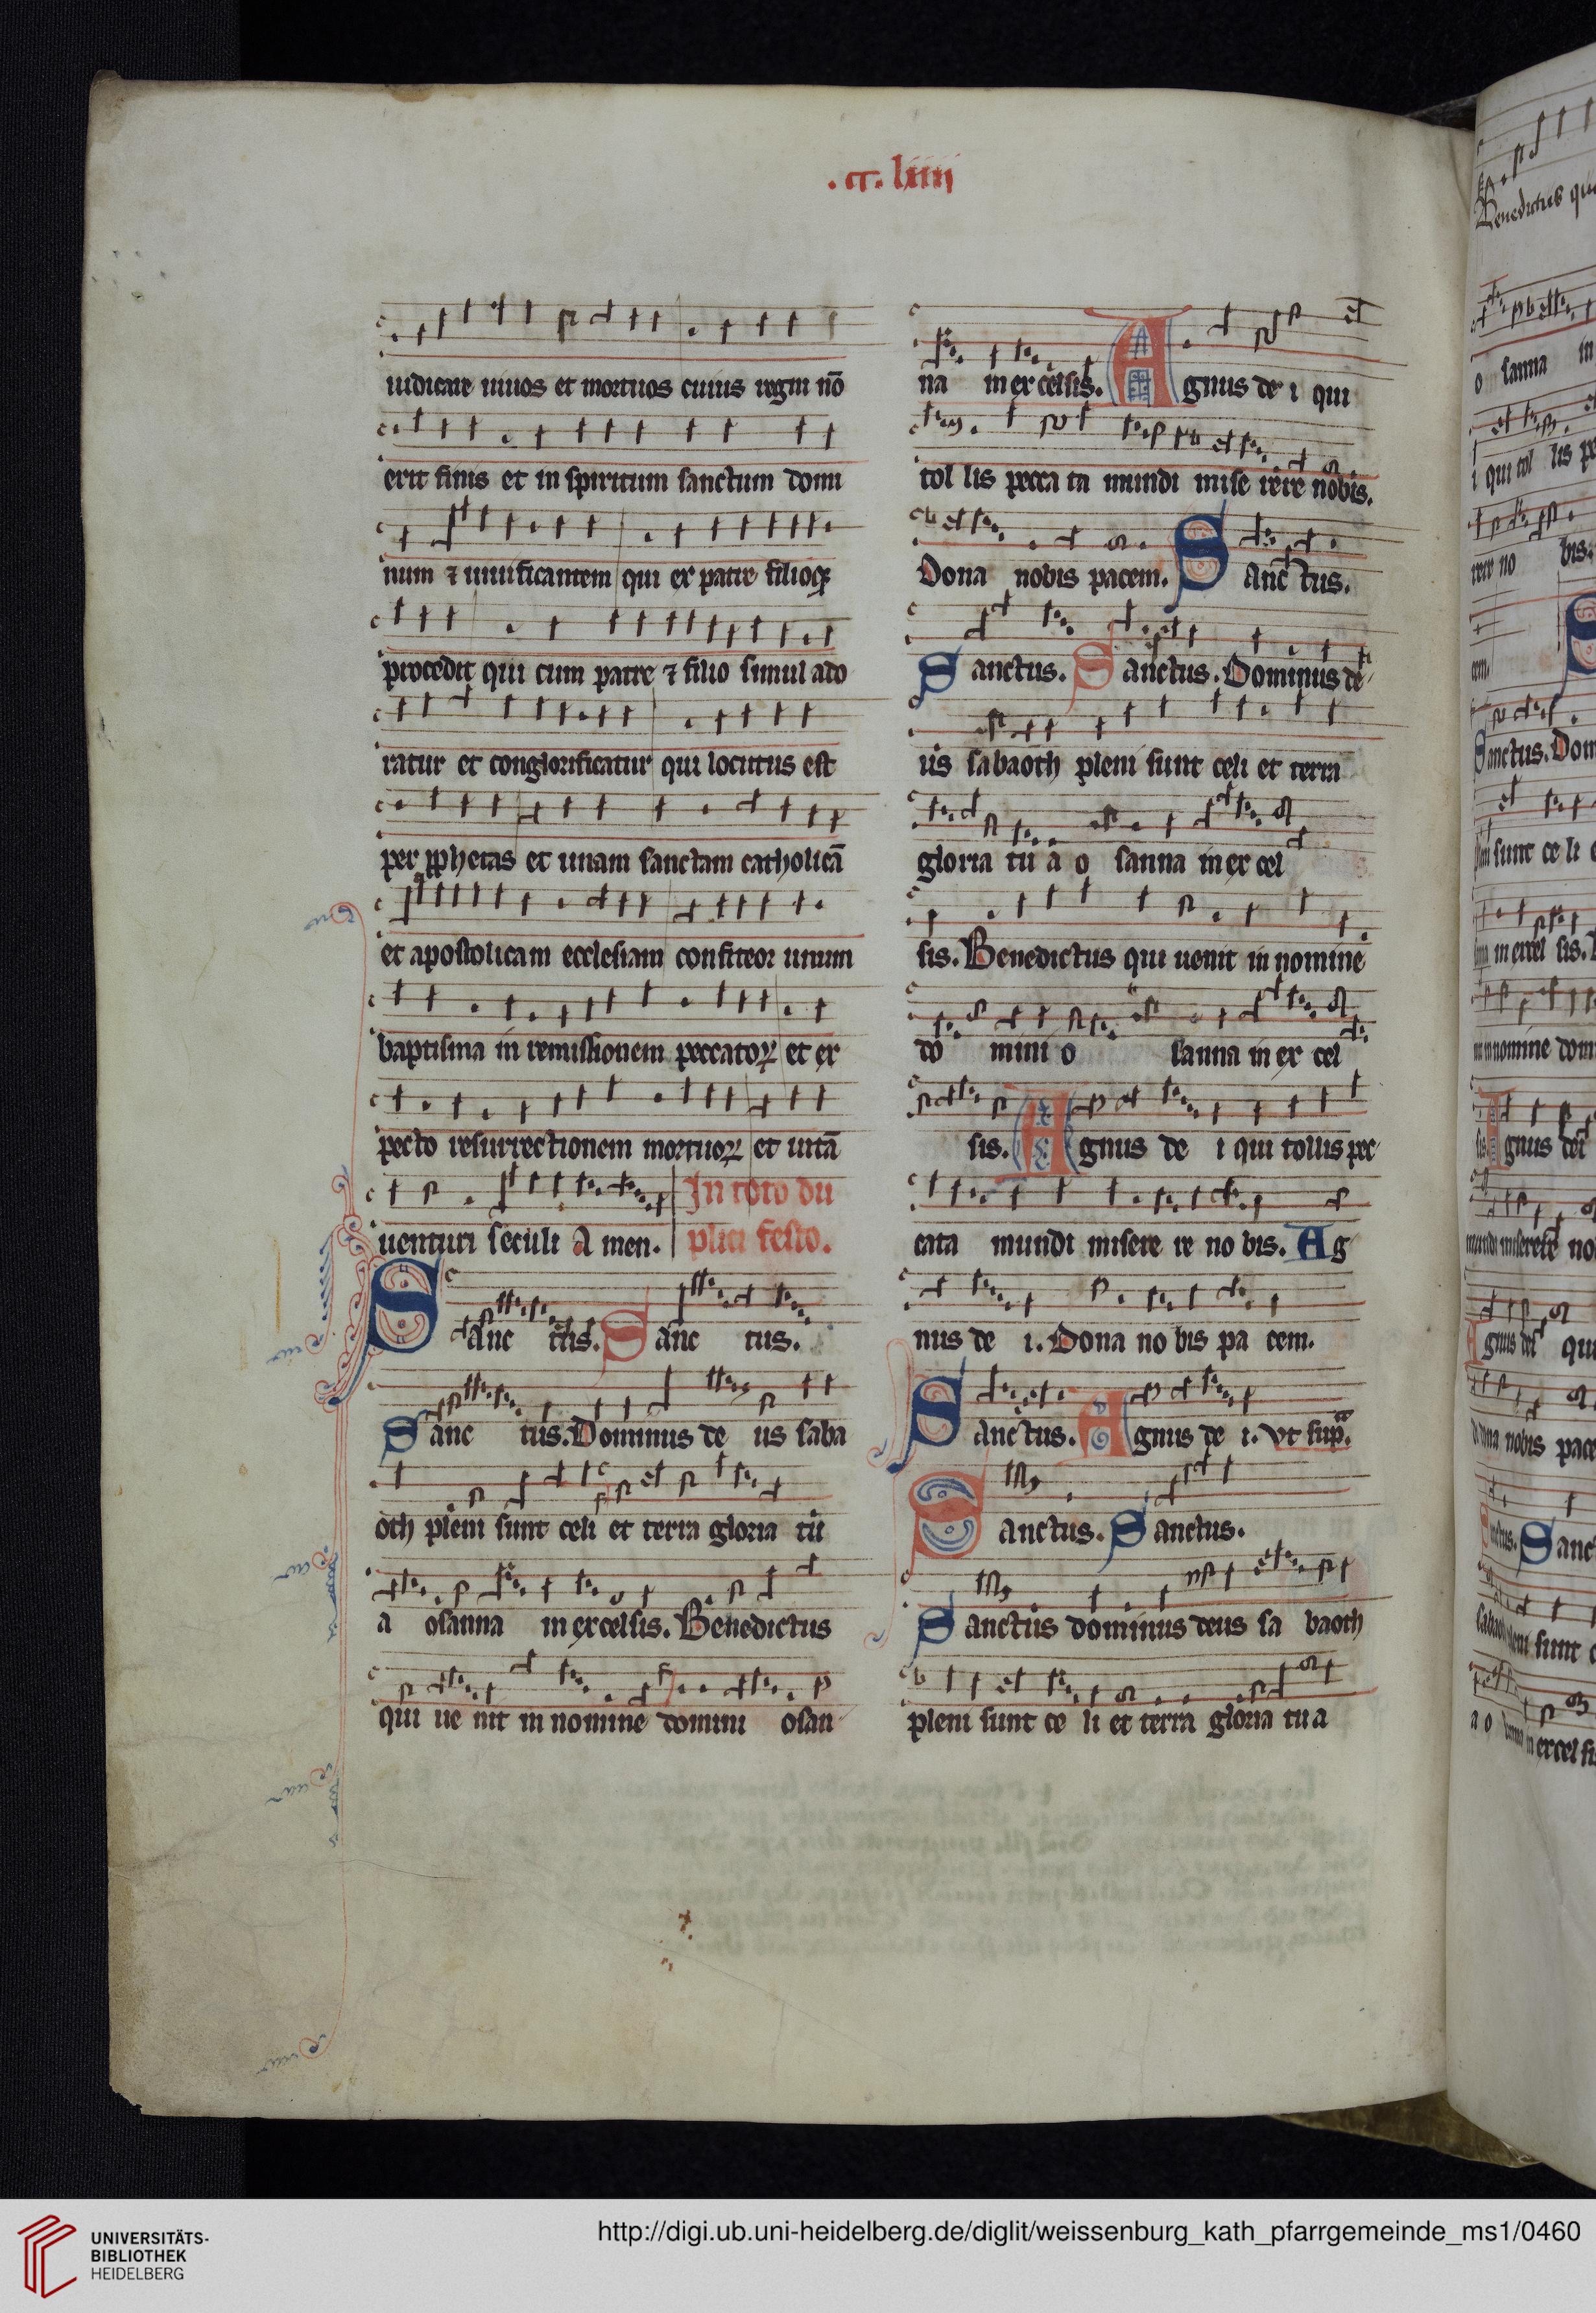 .cc. liiii
iudicare uiuos et mortuos cuius regni nō
erit finis et in spiritum sanctum domi
num ⁊ uiuificantem qui ex patre filioqꝫ
procedit qui cum patre ⁊ filio simul ado
ratur et conglorificatur qui locutus est
per ꝓphetas et unam sanctam catholicā
et apostolicam ecclesiam confiteor unum
baptisma in remissionem peccatoꝝ et ex
pecto resurrectionem mortuoꝝ et uitā
uenturi seculi A men.
In toto du
plici festo.
Sanc tus. Sanc tus.
Sanc tus. Dominus de us saba
oth pleni sunt celi et terra gloria tu
a osanna in excelsis. Benedictus
qui ue nit in nomine domini osan
na in excelsis. Agnus de i qui
tol lis pecca ta mundi mise rere nobis.
Dona nobis pacem. Sanc tus.
Sanctus. Sanctus. Dominus de
us sabaoth pleni sunt celi et terra
gloria tu a o sanna in ex cel
sis. Benedictus qui uenit in nomine
do mini o sanna in ex cel
sis. Agnus de i qui tollis pec
cata mundi misere re no bis. Ag
nus de i. Dona no bis pa cem.
Sanctus. Agnus de i. vt sup̄.
Sanctus. Sanctus.
Sanctus dominus deus sa baoth
pleni sunt ce li et terra gloria tu a
Benedictus qui
o sanna in
i qui tol lis pe
rere no bis.
cem.
Sanctus. Dom
sunt ce li
in excel sis.
in nomine dom
sis Agnus dei
mundi miserere no
Agnus dei qu
dona nobis pace
Sanc
sunt
a o in excel si
UNIVERSITÄTS-
BIBLIOTHEK
HEIDELBERG
http://digi.ub.uni-heidelberg.de/diglit/weissenburg_kath_pfarrgemeinde_ms1/0460